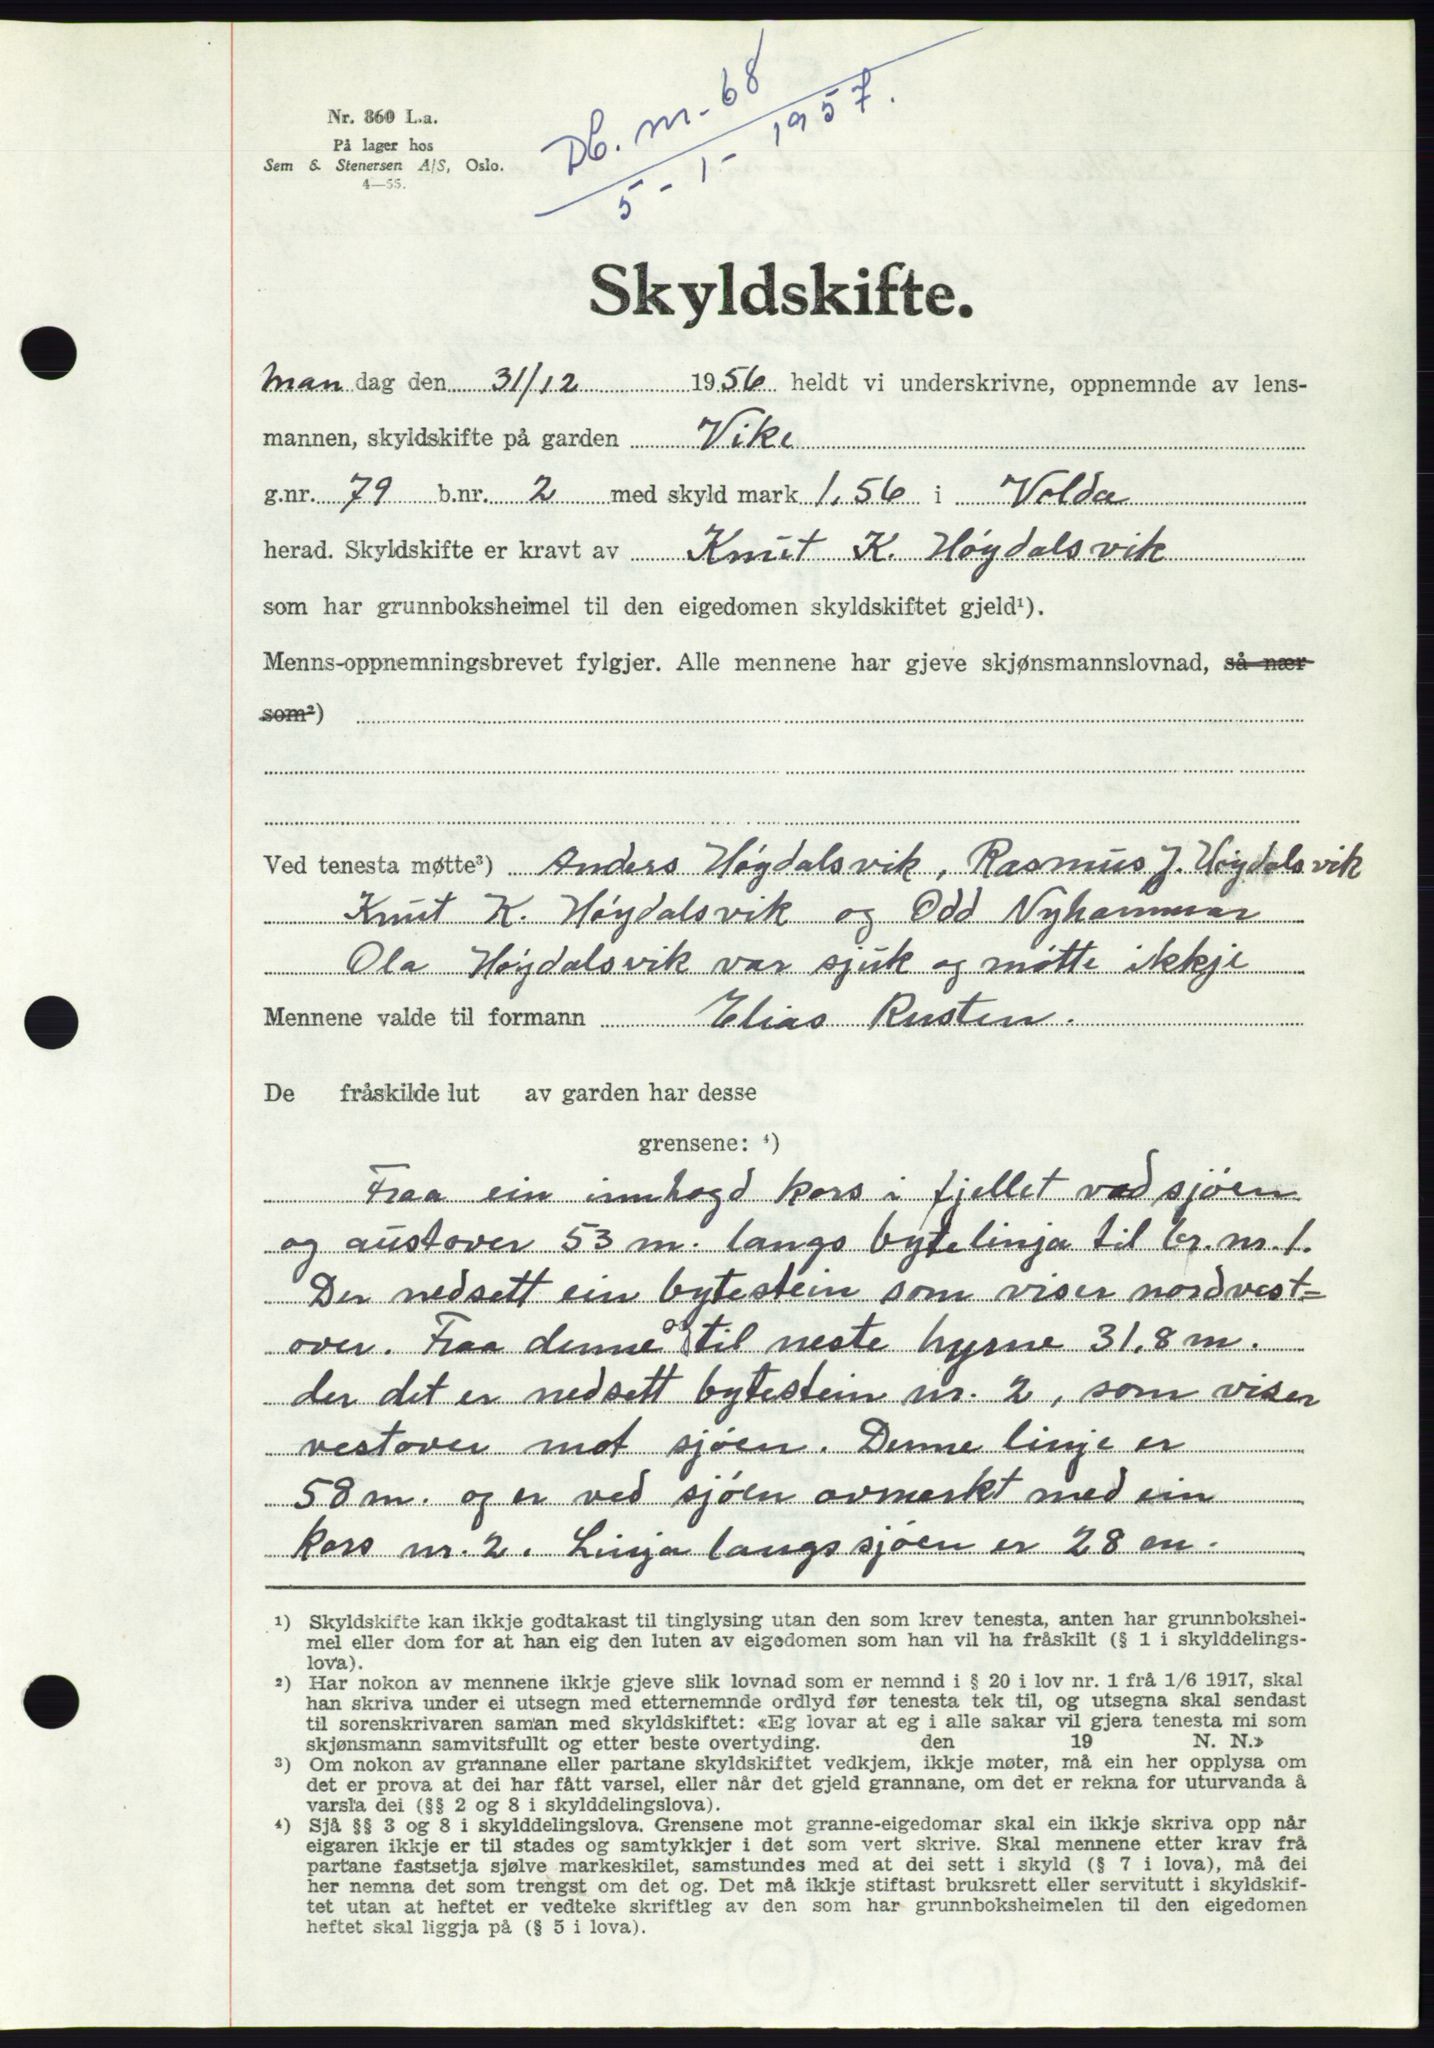 Nr. 860 L.a.
På lager hos
Sem & Stenersen A/S, Oslo.
4—55.
Db. nr. 68
5-1-1957.
Skyldskifte.
Man dag den 31/12 1956 heldt vi underskrivne, oppnemnde av lens-
mannen, skyldskifte på garden Vike
g.nr. 79 b.nr. 2 med skyld mark 1,56 i Volda
herad. Skyldskifte er kravt av Knut K. Høydalsvik
som har grunnboksheimel til den eigedomen skyldskiftet gjeld¹).
Menns-oppnemningsbrevet fylgjer. Alle mennene har gjeve skjønsmannslovnad, så nær
som²)
Ved tenesta møtte³) Anders Høydalsvik, Rasmus J. Høydalsvik
Knut K. Høydalsvik og Odd Nyhammar
Ola Høydalsvik var sjuk og møtte ikkje
Mennene valde til formann Elias Rusten.
De fråskilde lut av garden har desse
grensene: ⁴)
Fraa ein innhogd kors i fjellet ved sjøen
og austover 53 m. langs bytelinja til br. nr. 1.
Der nedsett ein bytestein som viser nordvest=
over. Fraa denne og til neste hyrne 31,8 m.
der det er nedsett bytestein nr. 2, som viser
vestover mot sjøen. Denne linje er
58 m. og er ved sjøen avmerkt med ein
kors nr. 2. Linja langs sjøen er 28 m.
¹) Skyldskifte kan ikkje godtakast til tinglysing utan den som krev tenesta, anten har grunnbokshei-
mel eller dom for at han eig den luten av eigedomen som han vil ha fråskilt (§ 1 i skylddelings-
lova).
²) Har nokon av mennene ikkje gjeve slik lovnad som er nemnd i § 20 i lov nr. 1 frå 1/6 1917, skal
han skriva under ei utsegn med etternemnde ordlyd før tenesta tek til, og utsegna skal sendast
til sorenskrivaren saman med skyldskiftet: «Eg lovar at eg i alle sakar vil gjera tenesta mi som
skjønsmann samvitsfullt og etter beste overtyding. den 19 N. N.»
³) Om nokon av grannane eller partane skyldskiftet vedkjem, ikkje møter, må ein her opplysa om
det er prova at dei har fått varsel, eller når det gjeld grannane, om det er rekna for uturvanda å
varsla dei (§§ 2 og 8 i skylddelingslova).
⁴) Sjå §§ 3 og 8 i skylddelingslova. Grensene mot granne-eigedomar skal ein ikkje skriva opp når
eigaren ikkje er til stades og samtykkjer i det som vert skrive. Skal mennene etter krav frå
partane fastsetja sjølve markeskilet, samstundes med at dei sett i skyld (§ 7 i lova), må dei
her nemna det som trengst om det og. Det må ikkje stiftast bruksrett eller servitutt i skyldskif-
tet utan at heftet er vedteke skriftleg av den som har grunnboksheimelen til den eigedomen
heftet skal liggja på (§ 5 i lova).